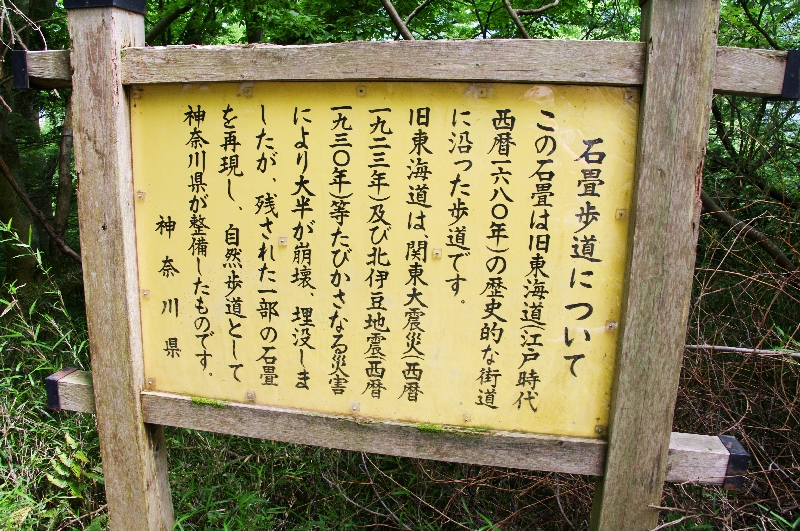 石畳歩道について
この石畳は旧東海道(江戸時代
西暦一六八〇年)の歴史的な街道
に沿った歩道です。
旧東海道は、関東大震災(西暦
一九二三年)及び北伊豆地震(西暦
一九三〇年)等たびかさなる災害
により大半が崩壊、埋没しま
したが、残された一部の石畳
を再現し、自然歩道として
神奈川県が整備したものです。
神奈川県